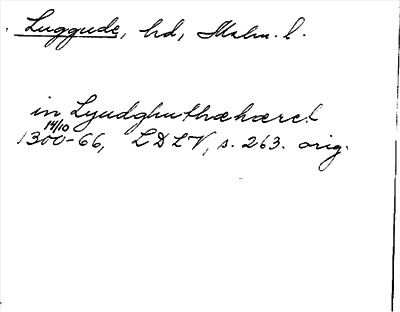 Luggude, hd, Malm. l.
in Lyudghuthæhæret
14/10
1300-66, LDLV, s. 263. orig.